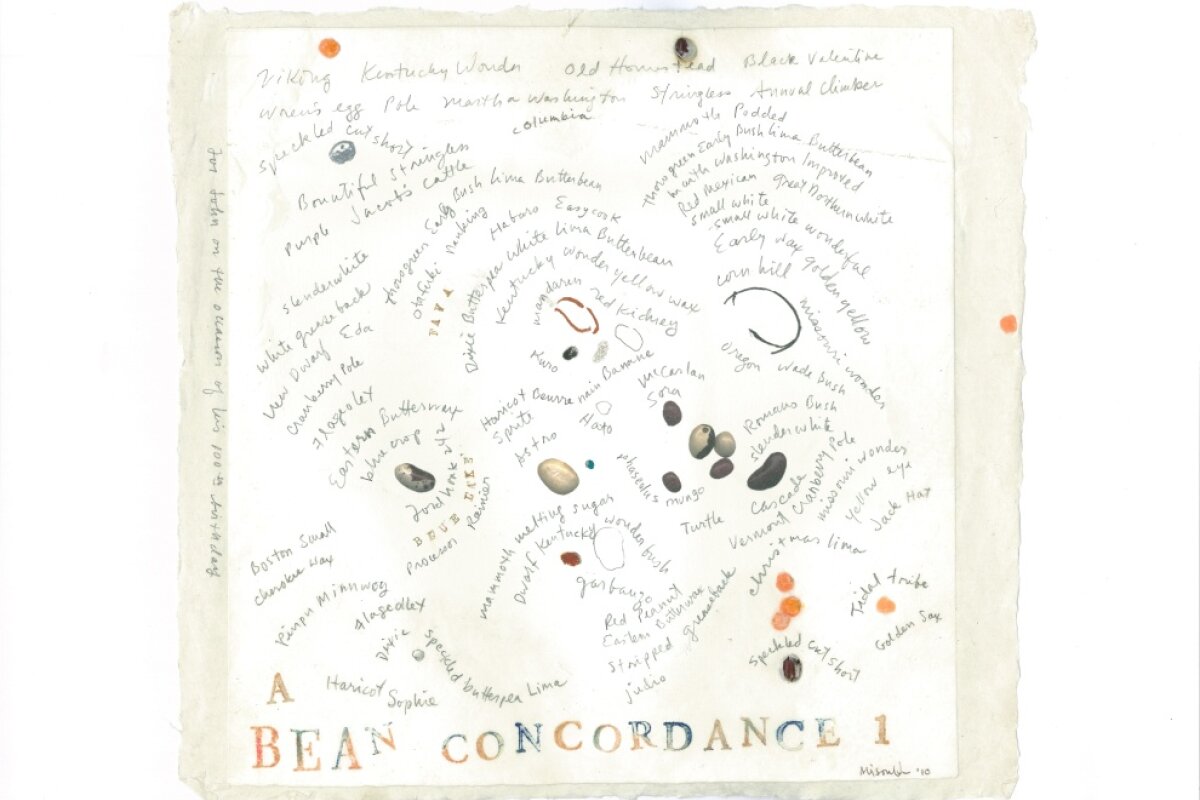 Viking Kentucky Wonder Old Homestead Black Valentine
Wren's egg Pole Martha Washington Stringless Annual Climber
Columbia
Speckled cut short
Bountiful Stringless
Jacob's Cattle
Purple
Mammoth Podded
Thorogreen Early Bush Lima Butterbean
Marth Washington Improved
Red Mexican Great Northern White
small white
small white wonderful
Early wax golden yellow
corn hill
missouri wonder
Oregon wade Bush
Slenderwhite
White greaseback
New Dwarf Eda
Cranberry Pole
Flageolet
Thorogreen Early Bush Lima Butterbean
Otofuki Nanking
FAVA
Haboro Easycook
Dixie Butterpea White Lima Butterbean
Kentucky wonder yellow wax
mandarin red Kidney
Kuro
Haricot Beurre nain Bamane
Hato
Sprite
Astro
McCaslan
Sora
Eastern Butterwax
blue crop
Fordhook 242
BLUE LAKE
Rainier
Processor
Romano Bush
slenderwhite
Phaseolus mungo
Turtle
Cascade
Vermont Cranberry Pole
missouri wonder
Yellow eye
Jack Hat
christmas lima
mammoth melting sugar
Dwarf Kentucky wonder bush
garbanzo
Red Peanut
Eastern Butterwax
Stripped greaseback
julio
Boston Small
cherokee wax
Rinpu Minnwog
Flagedlex
Dixie
Speckled butterpea Lima
Tidal tribe
Golden Sax
Speckled Cut Short
Haricot Sophie
A
BEAN CONCORDANCE 1
for John on the occasion of his 100th birthday
'10